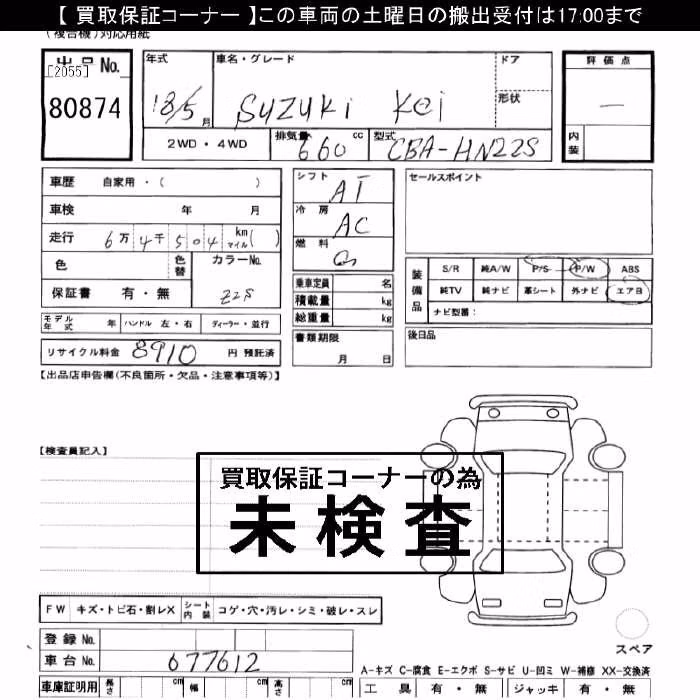 【 買取保証コーナー 】この車両の土曜日の搬出受付は17:00まで
(複合機)対応用紙
出品No.
[2055]
80874
年式 車名・グレード ドア 評価点
18/5月 SUZUKi Kei 形状 —
2WD・4WD 排気量 660 cc 型式 CBA-HN22S 内装
車歴 自家用・( )
車検 年 月
走行 6万4千504 km マイル( )
色 色替 カラーNo.
保証書 有・無 Z2S
モデル年式 年 ハンドル 左・右 ディーラー・並行
リサイクル料金 8910 円 預託済
シフト AT
冷房 AC
燃料 G
乗車定員 名
積載量 kg
総重量 kg
書類期限
月 日
セールスポイント
装備品 S/R 純A/W P/S P/W ABS
純TV 純ナビ 革シート 外ナビ エアB
ナビ型番:
後日品
【出品店申告欄(不良箇所・欠品・注意事項等)】
【検査員記入】
買取保証コーナーの為
未検査
FW キズ・トビ石・割レX シート内装 コゲ・穴・汚レ・シミ・破レ・スレ
登録 No.
車台 No. 677612
スペア
A-キズ C-腐食 E-エクボ S-サビ U-凹ミ W-補修 XX-交換済
車庫証明用 長さ cm 幅 cm 高さ cm 工具 有・無 ジャッキ 有・無